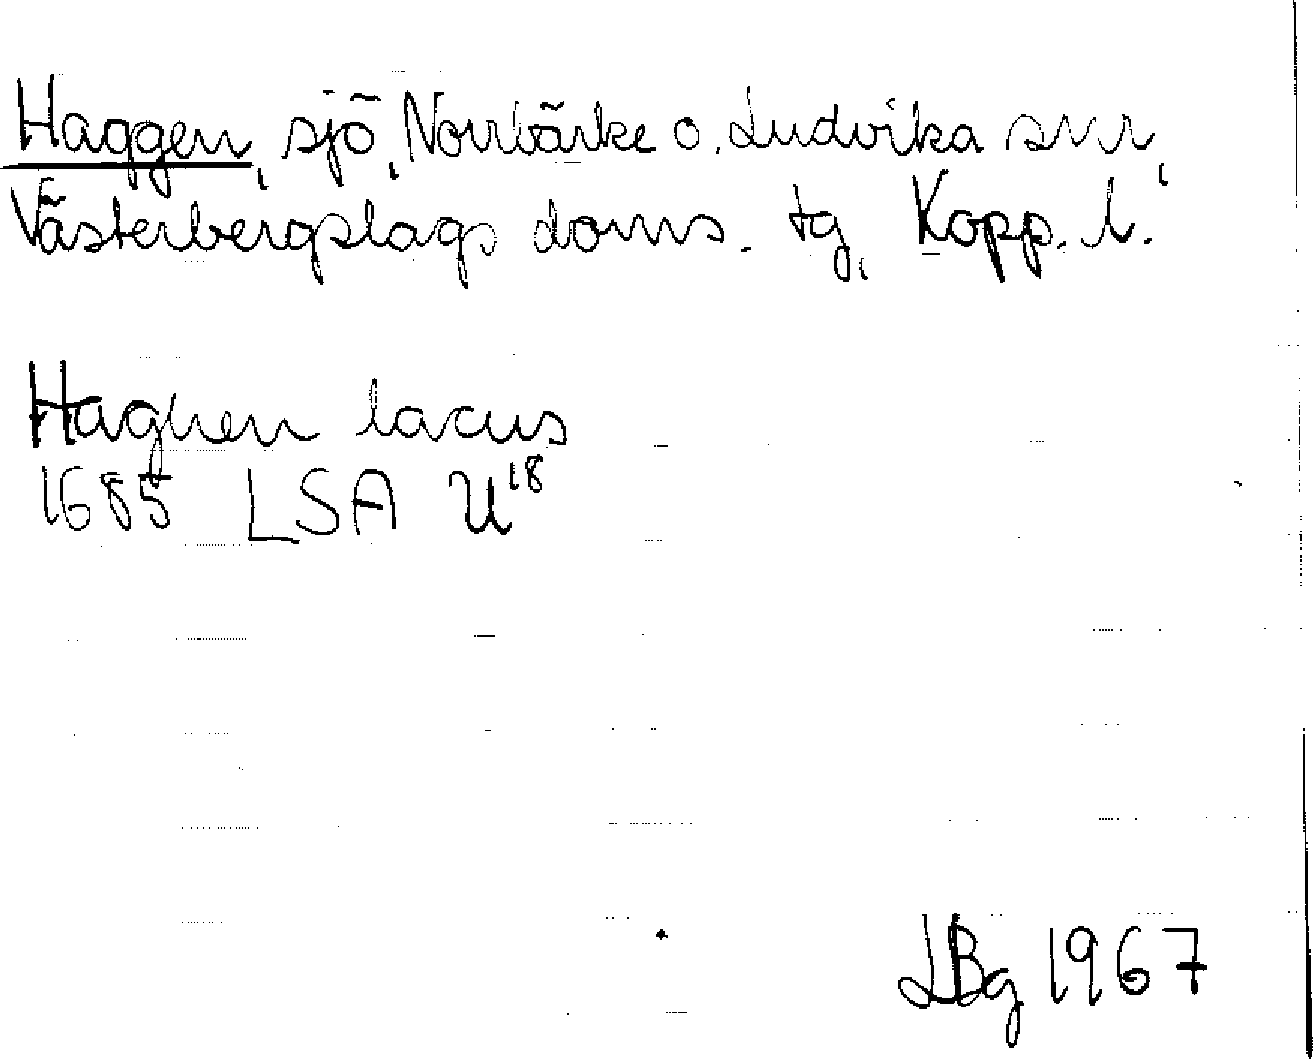 Haggen, sjö, Norrbärke o. Ludvika snr,
Västerbergslags doms. tg, Kopp. l.
Haghen lacus
1685 LSA U18
LBg 1967